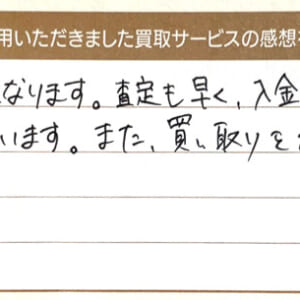 用いただきました買取サービスの感想
なります。査定も早く、入金
います。また、買い取りを